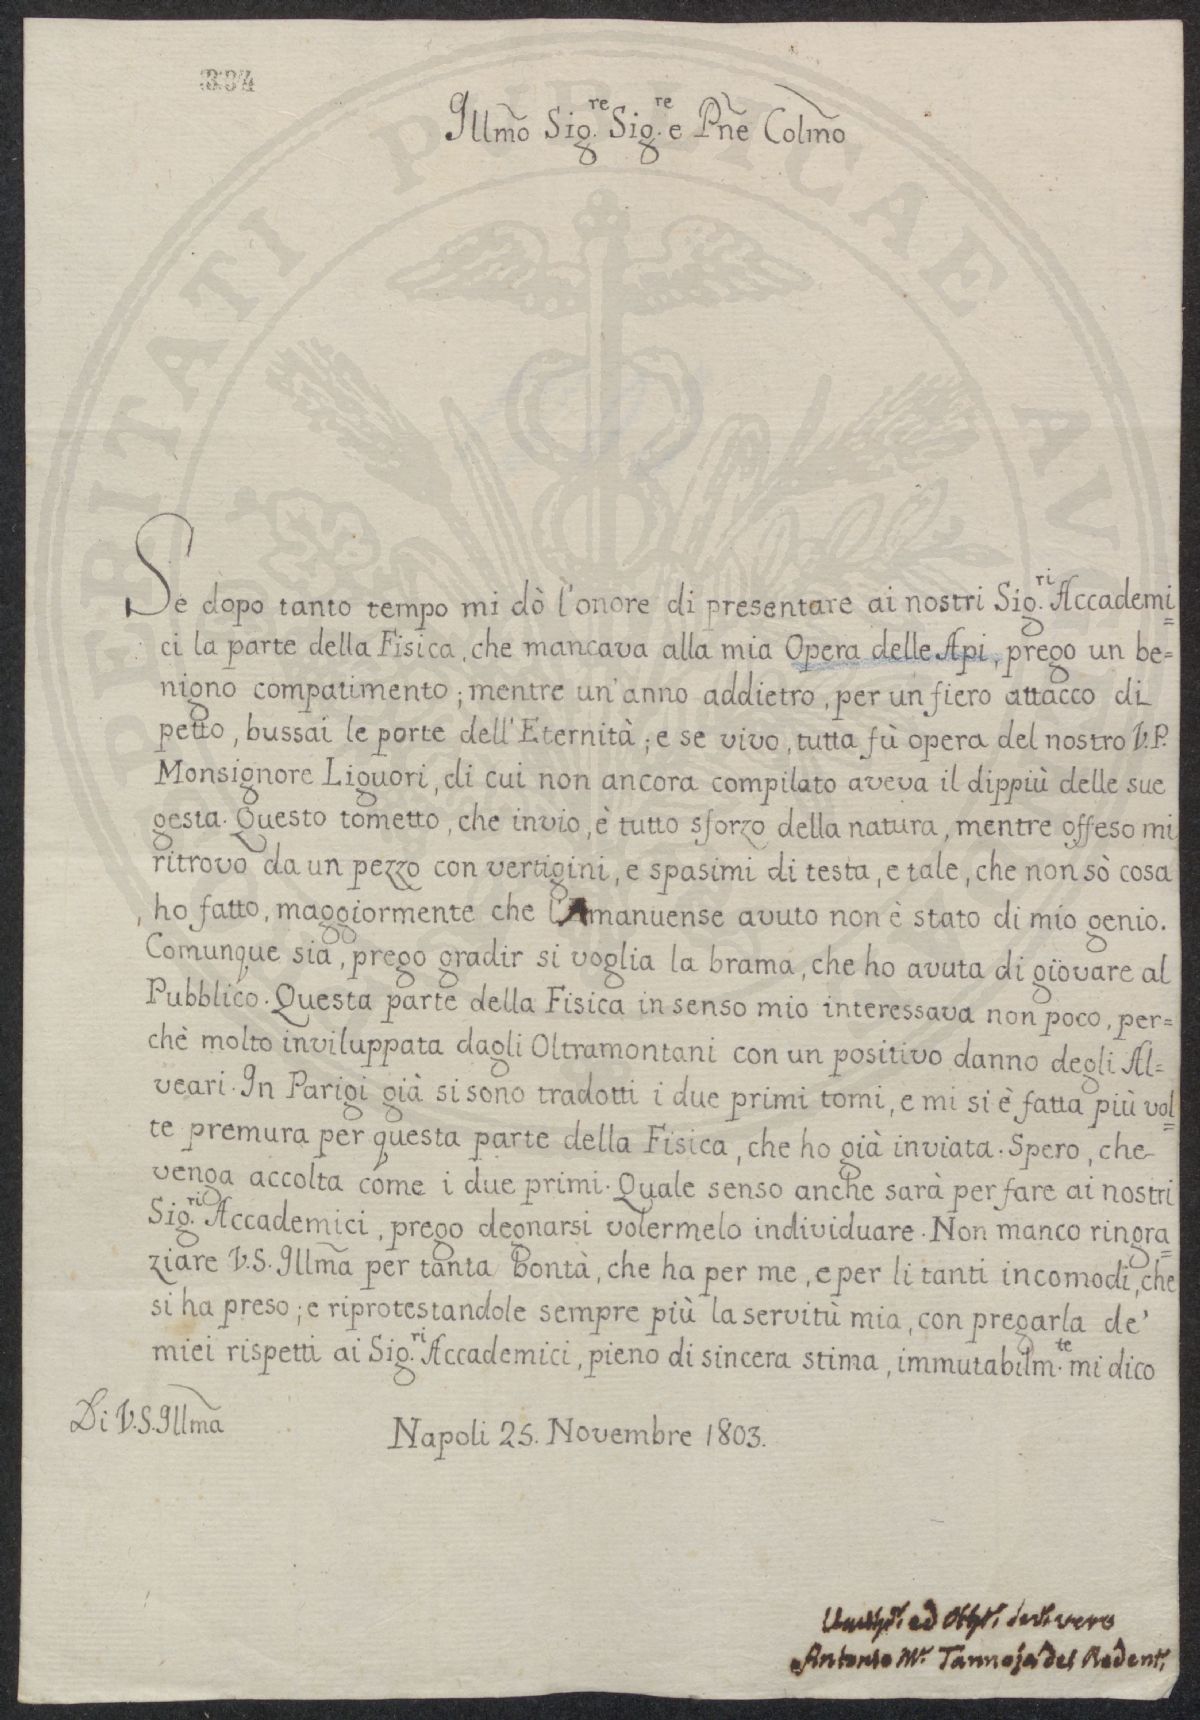 394
Illm̃o Sig.re Sig.re e Pñe Colm̃o
Se dopo tanto tempo mi dò l'onore di presentare ai nostri Sig.ri Accademi=
ci la parte della Fisica, che mancava alla mia Opera delle Api, prego un be=
nigno compatimento; mentre un'anno addietro, per un fiero attacco di
petto, bussai le porte dell'Eternità; e se vivo, tutta fù opera del nostro V.P.
Monsignore Liguori, di cui non ancora compilato aveva il dippiù delle sue
gesta. Questo tometto, che invio, è tutto sforzo della natura, mentre offeso mi
ritrovo da un pezzo con vertigini, e spasimi di testa, e tale, che non sò cosa
ho fatto, maggiormente che l'Amanuense avuto non è stato di mio genio.
Comunque sia, prego gradir si voglia la brama, che ho avuta di giovare al
Pubblico. Questa parte della Fisica in senso mio interessava non poco, per=
chè molto inviluppata dagli Oltramontani con un positivo danno degli Al=
veari. In Parigi già si sono tradotti i due primi tomi, e mi si è fatta più vol=
te premura per questa parte della Fisica, che ho già inviata. Spero, che
venga accolta come i due primi. Quale senso anche sarà per fare ai nostri
Sig.ri Accademici, prego degnarsi volermelo individuare. Non manco ringra=
ziare V.S. Illm̃a per tanta bontà, che ha per me, e per li tanti incomodi, che
si ha preso; e riprotestandole sempre più la servitù mia, con pregarla de'
miei rispetti ai Sig.ri Accademici, pieno di sincera stima, immutabilm.te mi dico
Di V.S. Illm̃a
Napoli 25. Novembre 1803.
ed
Antonio M.a Tannoja del Redent.
PUBLICAE